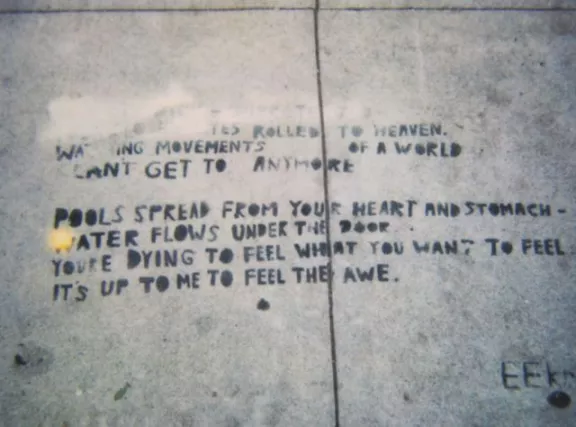 ROLLED TO HEAVEN.
MOVEMENTS OF A WORLD
CAN'T GET TO ANYMORE
POOLS SPREAD FROM YOUR HEART AND STOMACH -
WATER FLOWS UNDER THE DOOR.
YOU'RE DYING TO FEEL WHAT YOU WANT TO FEEL
IT'S UP TO ME TO FEEL THE AWE.